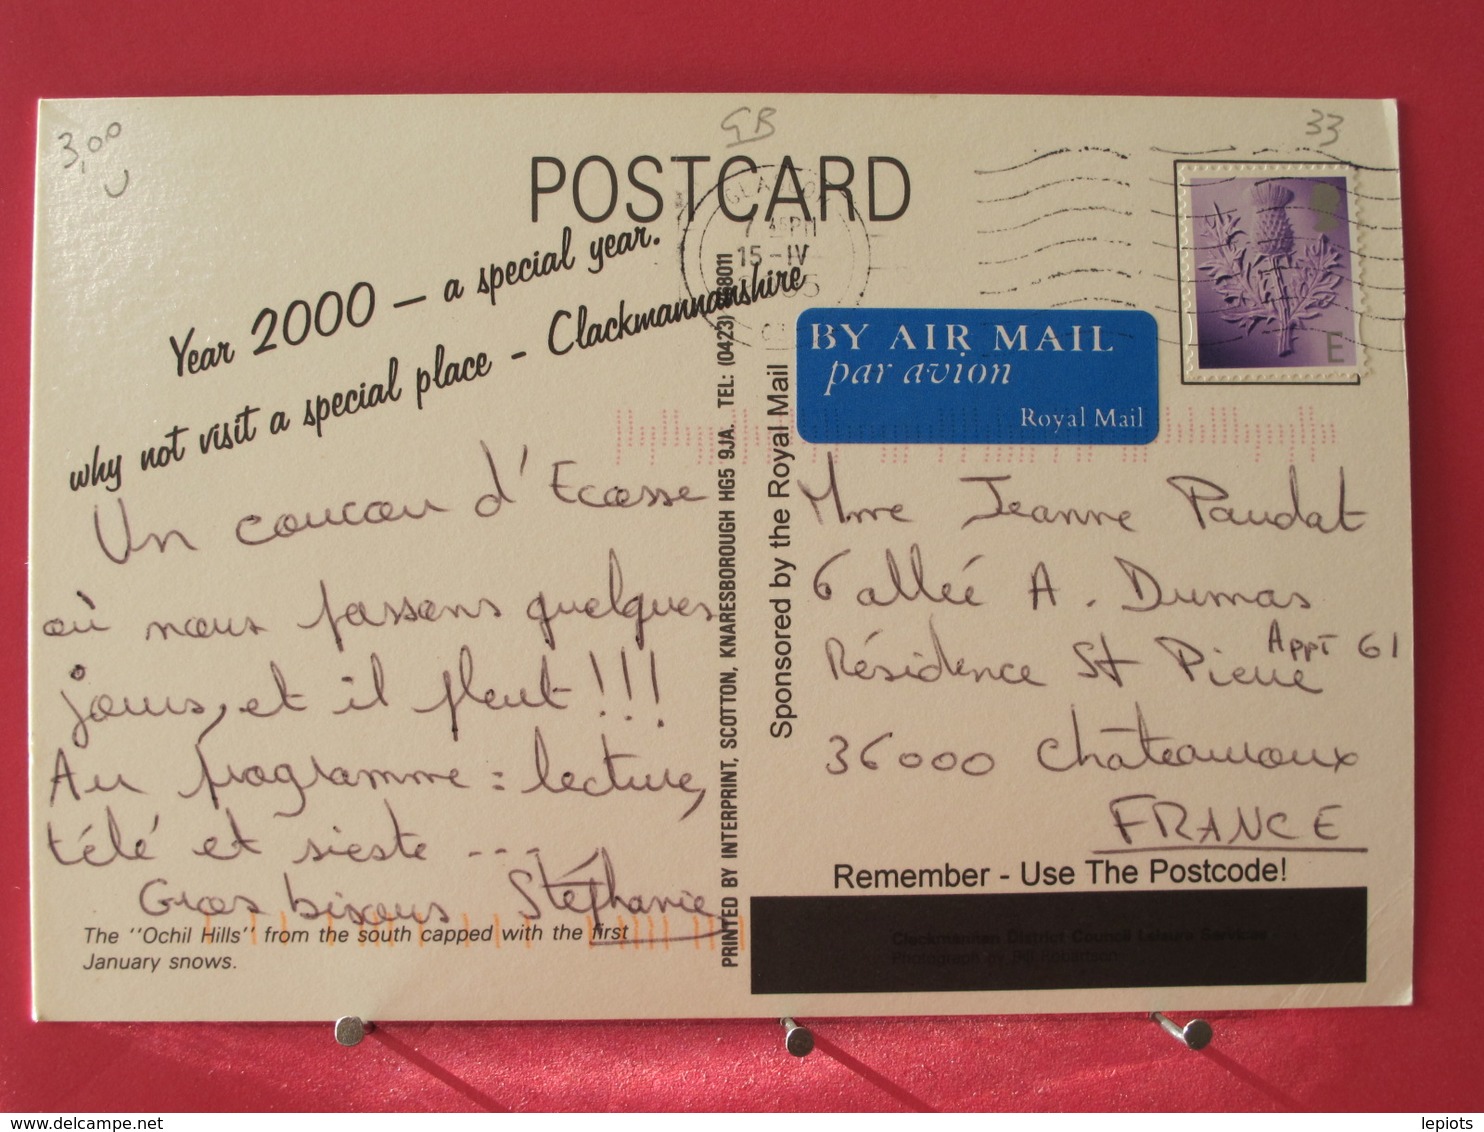 3,00
GB
33
POSTCARD
7 PM
15-IV
Year 2000 – a special year.
why not visit a special place - Clackmannanshire
E
BY AIR MAIL
par avion
Royal Mail
Un coucou d'Ecosse
où nous passons quelques
jours, et il pleut!!!
Au programme : lecture,
télé et sieste ---
Gros bisous Stéphanie
The ''Ochil Hills'' from the south capped with the first
January snows.
PRINTED BY INTERPRINT, SCOTTON, KNARESBOROUGH HG5 9JA. TEL: (0423) 868011
Sponsored by the Royal Mail
Mme Jeanne Paudat
6 allée A. Dumas
Appt 61
Résidence St Pierre
36000 Châteauroux
FRANCE
Remember - Use The Postcode!
Clackmannan District Council Leisure Services
Photograph by Bill Robertson
delcampe.net
lepiots